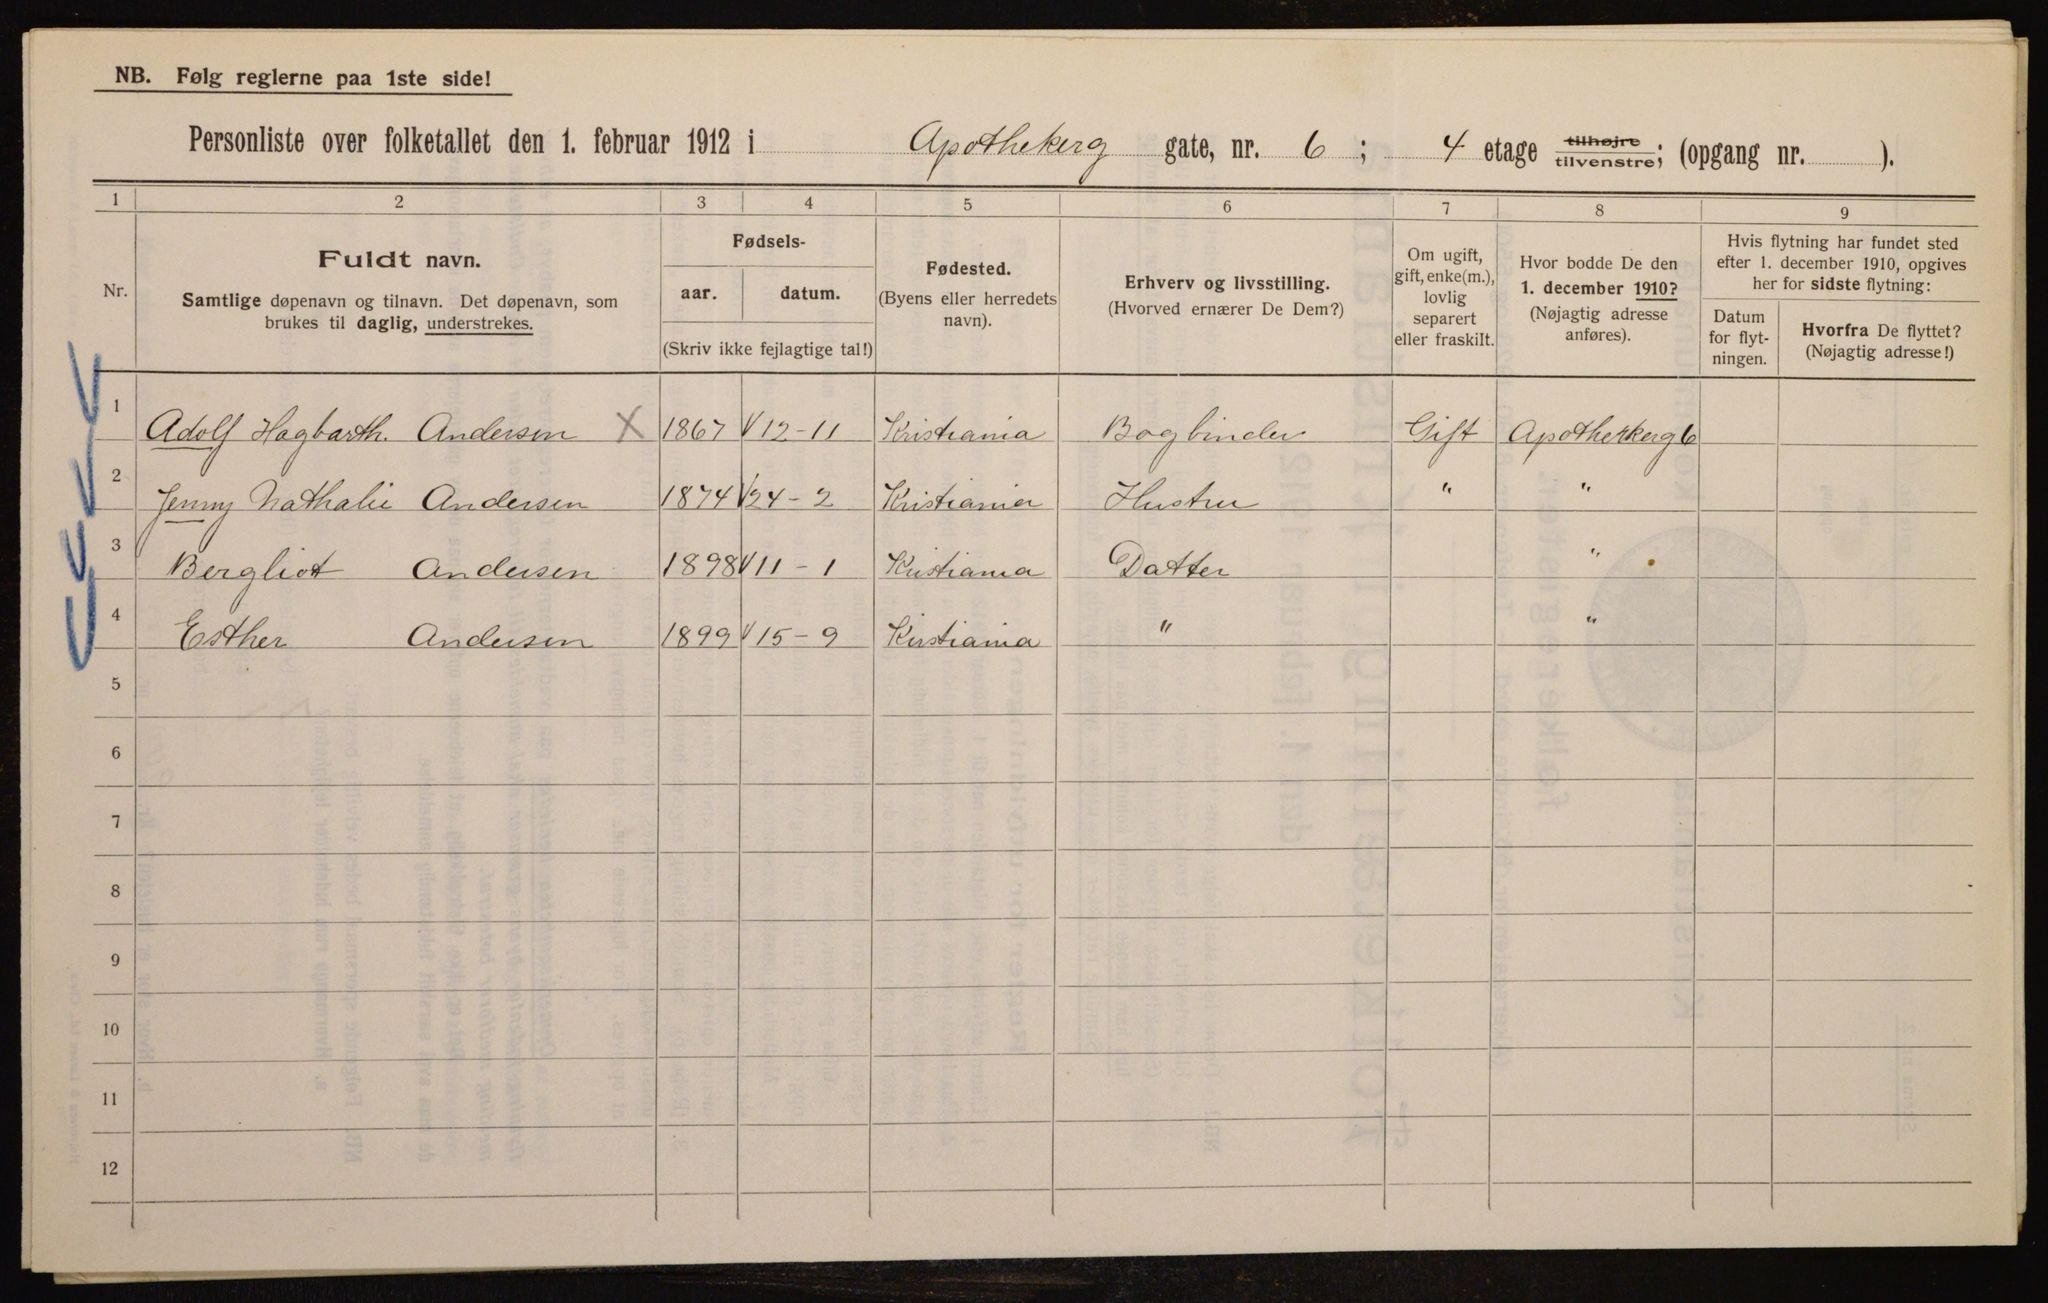 NB. Følg reglerne paa 1ste side!
Personliste over folketallet den 1. februar 1912 i Apothekerg gate, nr. 6 ; 4 etage tilhøjre tilvenstre; (opgang nr. ).
1 2 3 4 5 6 7 8 9
Nr.
Fuldt navn.
Samtlige døpenavn og tilnavn. Det døpenavn, som
brukes til daglig, understrekes.
Fødsels-
aar. datum.
(Skriv ikke fejlagtige tal!)
Fødested.
(Byens eller herredets
navn).
Erhverv og livsstilling.
(Hvorved ernærer De Dem?)
Om ugift,
gift, enke(m.),
lovlig
separert
eller fraskilt.
Hvor bodde De den
1. december 1910?
(Nøjagtig adresse
anføres).
Hvis flytning har fundet sted
efter 1. december 1910, opgives
her for sidste flytning:
Datum
for flyt-
ningen.
Hvorfra De flyttet?
(Nøjagtig adresse!)
1 Adolf Hagbarth. Andersen X 1867 12-11 Kristiania Bogbinder Gift Apotherkerg 6
2 Jenny Nathalie Andersen 1874 24-2 Kristiania Hustru " "
3 Bergliot Andersen 1898 11-1 Kristiania Datter "
4 Esther Andersen 1899 15-9 Kristiania " "
5
6
7
8
9
10
11
12